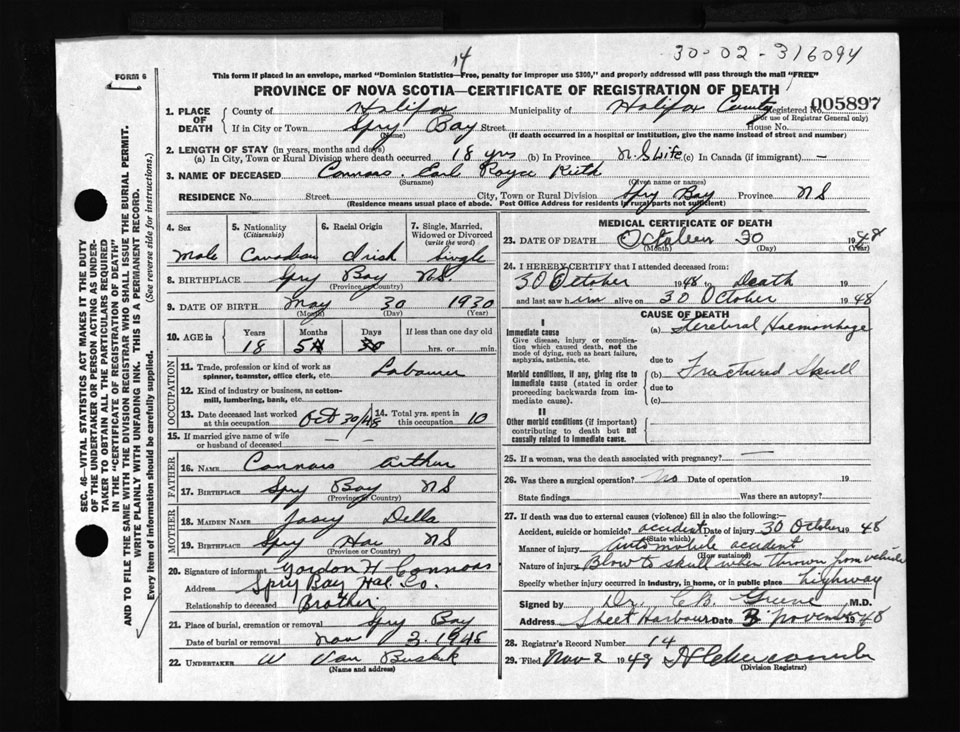 30-02-316094
14
FORM 6
This form if placed in an envelope, marked "Dominion Statistics—Free, penalty for improper use $300," and properly addressed will pass through the mail "FREE"
PROVINCE OF NOVA SCOTIA—CERTIFICATE OF REGISTRATION OF DEATH
1. PLACE OF DEATH County of Halifax Municipality of Halifax County Registered No. 005897
(For use of Registrar General only)
If in City or Town Spry Bay Street House No.
(Name) (If death occurred in a hospital or institution, give the name instead of street and number)
2. LENGTH OF STAY (in years, months and days)
(a) In City, Town or Rural Division where death occurred 18 yrs (b) In Province N.S Life (c) In Canada (if immigrant) —
3. NAME OF DECEASED Connors Earl Royce Kieth
(Surname) (Given name or names)
RESIDENCE No. Street City, Town or Rural Division Spry Bay Province NS
(Residence means usual place of abode. Post Office Address for residents in rural parts not sufficient)
4. Sex 5. Nationality (Citizenship) 6. Racial Origin 7. Single, Married, Widowed or Divorced (write the word)
Male Canadian Irish Single
8. BIRTHPLACE Spry Bay NS.
(Province or Country)
9. DATE OF BIRTH May 30 1930
(Month) (Day) (Year)
10. AGE in Years Months Days If less than one day old
18 5 hrs. or min.
OCCUPATION
11. Trade, profession or kind of work as spinner, teamster, office clerk, etc. Labourer
12. Kind of industry or business, as cotton-mill, lumbering, bank, etc.
13. Date deceased last worked at this occupation Oct 30/48 14. Total yrs. spent in this occupation 10
15. If married give name of wife or husband of deceased — —
FATHER
16. NAME Connors Arthur
17. BIRTHPLACE Spry Bay NS
(Province or Country)
MOTHER
18. MAIDEN NAME Josey Della
19. BIRTHPLACE Spry NS
(Province or Country)
20. Signature of informant Gordon H Connors
Address Spry Bay Hal. Co.
Relationship to deceased Brother
21. Place of burial, cremation or removal Spry Bay
Date of burial or removal Nov 2. 1948
22. UNDERTAKER W Van Buskirk
(Name and address)
MEDICAL CERTIFICATE OF DEATH
23. DATE OF DEATH October 30 1948
(Month) (Day) (Year)
24. I HEREBY CERTIFY that I attended deceased from:
30 October 1948 to Death 19
and last saw him alive on 30 October 1948
CAUSE OF DEATH
I
Immediate cause (a) Cerebral Haemorrhage
Give disease, injury or complication which caused death, not the mode of dying, such as heart failure, asphyxia, asthenia, etc.
due to
Morbid conditions, if any, giving rise to immediate cause (stated in order proceeding backwards from immediate cause). (b) Fractured Skull
due to
(c)
II
Other morbid conditions (if important) contributing to death but not causally related to immediate cause.
25. If a woman, was the death associated with pregnancy? —
26. Was there a surgical operation? No Date of operation 19
State findings Was there an autopsy?
27. If death was due to external causes (violence) fill in also the following:—
Accident, suicide or homicide? accident Date of injury 30 October 1948
(State which)
Manner of injury Automobile accident
(How sustained)
Nature of injury Blow to skull when thrown from vehicle
Specify whether injury occurred in industry, in home, or in public place highway
Signed by Dr. C B. Greene M.D.
Address Sheet Harbour Date 3 November 1948
28. Registrar's Record Number 14
29. Filed Nov 2 1948
(Division Registrar)
SEC. 46—VITAL STATISTICS ACT MAKES IT THE DUTY
OF THE UNDERTAKER OR PERSON ACTING AS UNDER-
TAKER TO OBTAIN ALL THE PARTICULARS REQUIRED
IN THE "CERTIFICATE OF REGISTRATION OF DEATH"
AND TO FILE THE SAME WITH THE DIVISION REGISTRAR WHO SHALL ISSUE THE BURIAL PERMIT.
WRITE PLAINLY WITH UNFADING INK. THIS IS A PERMANENT RECORD.
Every item of information should be carefully supplied. (See reverse side for instructions.)